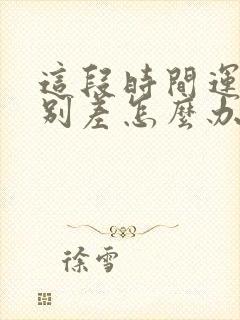 這段時間運
別差怎麼办
徐雪